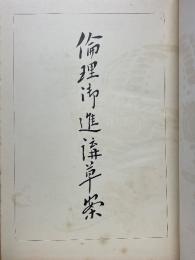 倫理御進講草案